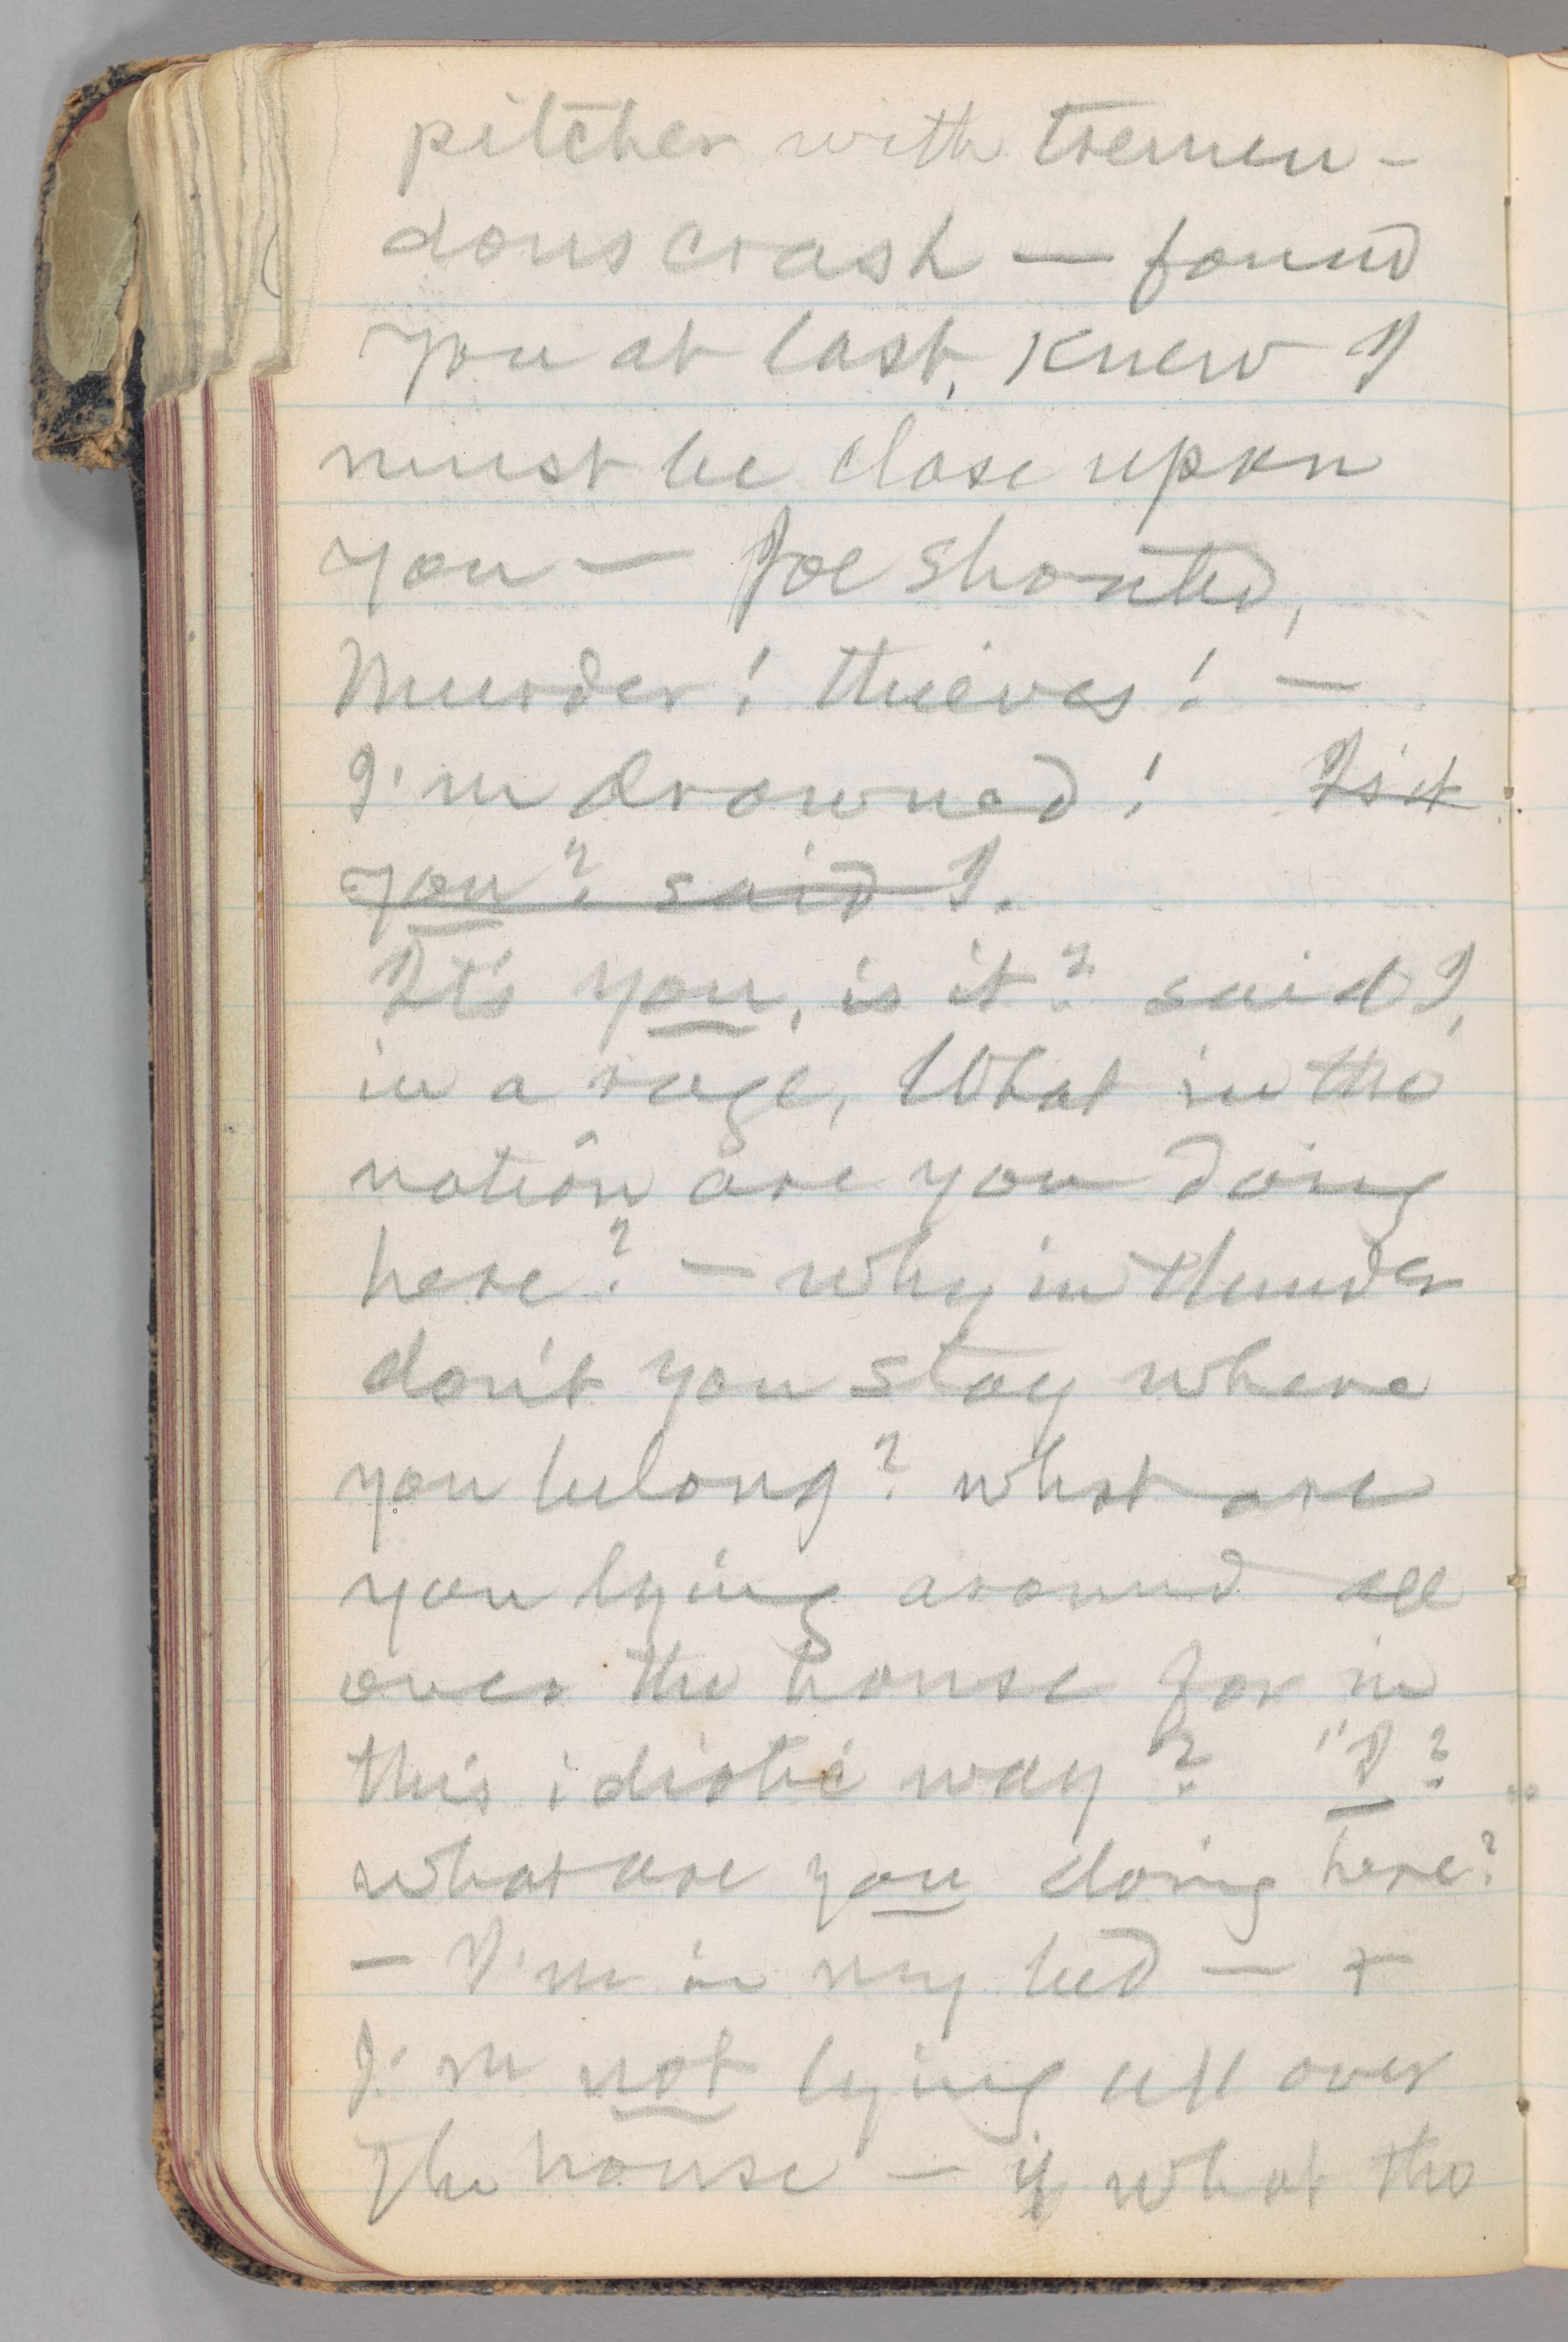 pitcher with tremen-
dous crash — found
you at last, knew I
must be close upon
you — Joe shouted,
Murder! thieves! —
I'm drowned! Is it
you? said I.
It's you, is it? said I,
in a rage, What in the
nation are you doing
here? — why in thunder
don't you stay where
you belong? what are
you lying around all
over the house for in
this idiotic way? "I?
what are you doing here?
— I'm in my bed — &
I'm not lying all over
the house — if what the